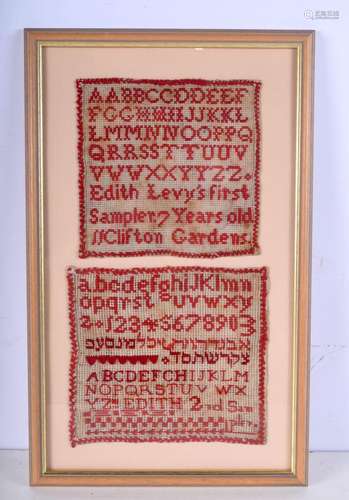 AABBCCDDEEF
FGGHHIIJJKKL
LMMNNOOPPQ
QRRSSTTUUV
VWWXXYYZZ
Edith Levy's first
Sampler, 7 Years old
11 Clifton Gardens.
abcdefghiJKlmn
opqrst uvwxy
z 1234567890
אבגדהוזחטיכל מנסעפ
ABCDEFGHIJKLM
NOPQRSTUV WX
YZ EDITH 2nd Sam
pler.